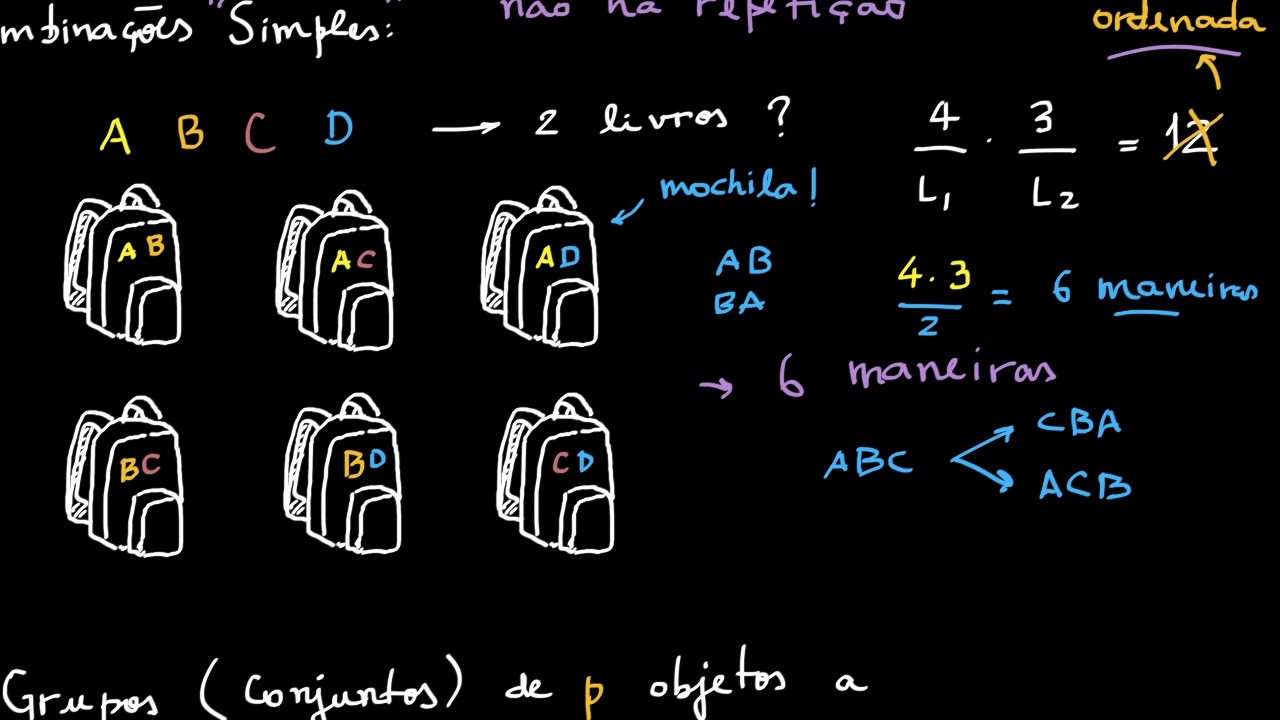 mbinações "Simples": não há repetição
ordenada
A B C D → 2 livros ?
4/L₁ · 3/L₂ = 12
mochila!
A B
A C
A D
AB
BA
4 · 3 / 2 = 6 maneiras
→ 6 maneiras
B C
B D
C D
ABC
CBA
ACB
Grupos (conjuntos) de p objetos a